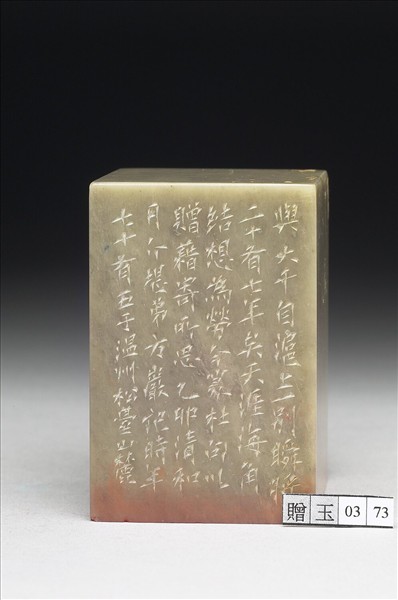 與大千自滬上一別瞬將
二十有七年矣天涯海角
結想為勞今篆杜句以
贈藉寄所思乙卯清和
月介堪弟方巖記時年
七十有五于溫州松臺山麓
贈 玉 03 73